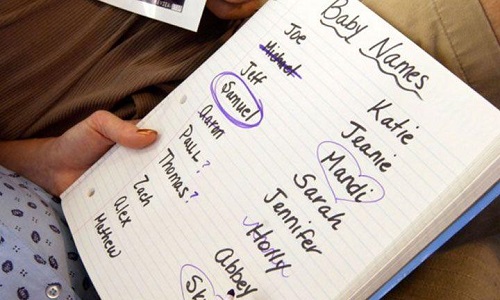 Baby Names
Joe
Michael
Jeff
Samuel
Aaron
Paul?
Thomas?
Zach
Alex
Mathew
Katie
Jeanie
Mandi
Sarah
Jennifer
Holly
Abbey